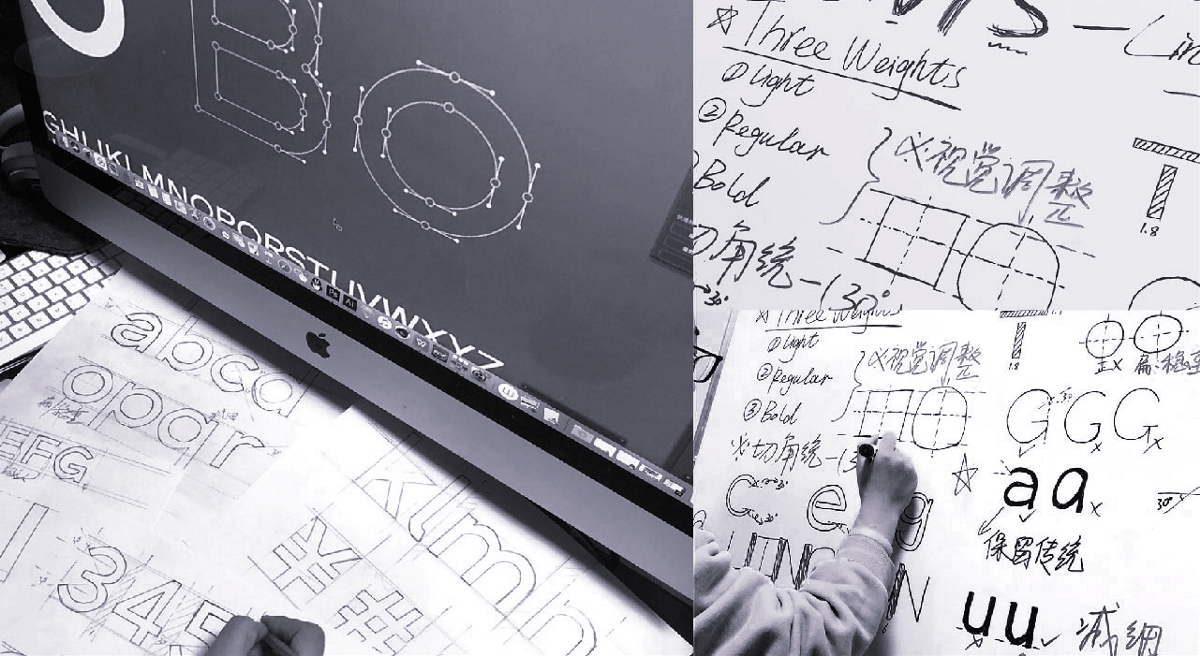 B O
GHIJKLMNOPQRSTUVWXYZ
abcd
opqr
EFG
345
klmn
¥#
☆ Three Weights
①light
②Regular
Bold
※视觉调整
切角统一(30°
30°
1.8
Three Weights
①light
②Regular
③Bold
※视觉调整
※切角统一(3
1.8
正x
G G G x x
30°
C e g
30°
30°
a a x
30°
保留传统
N
u u
x
减细